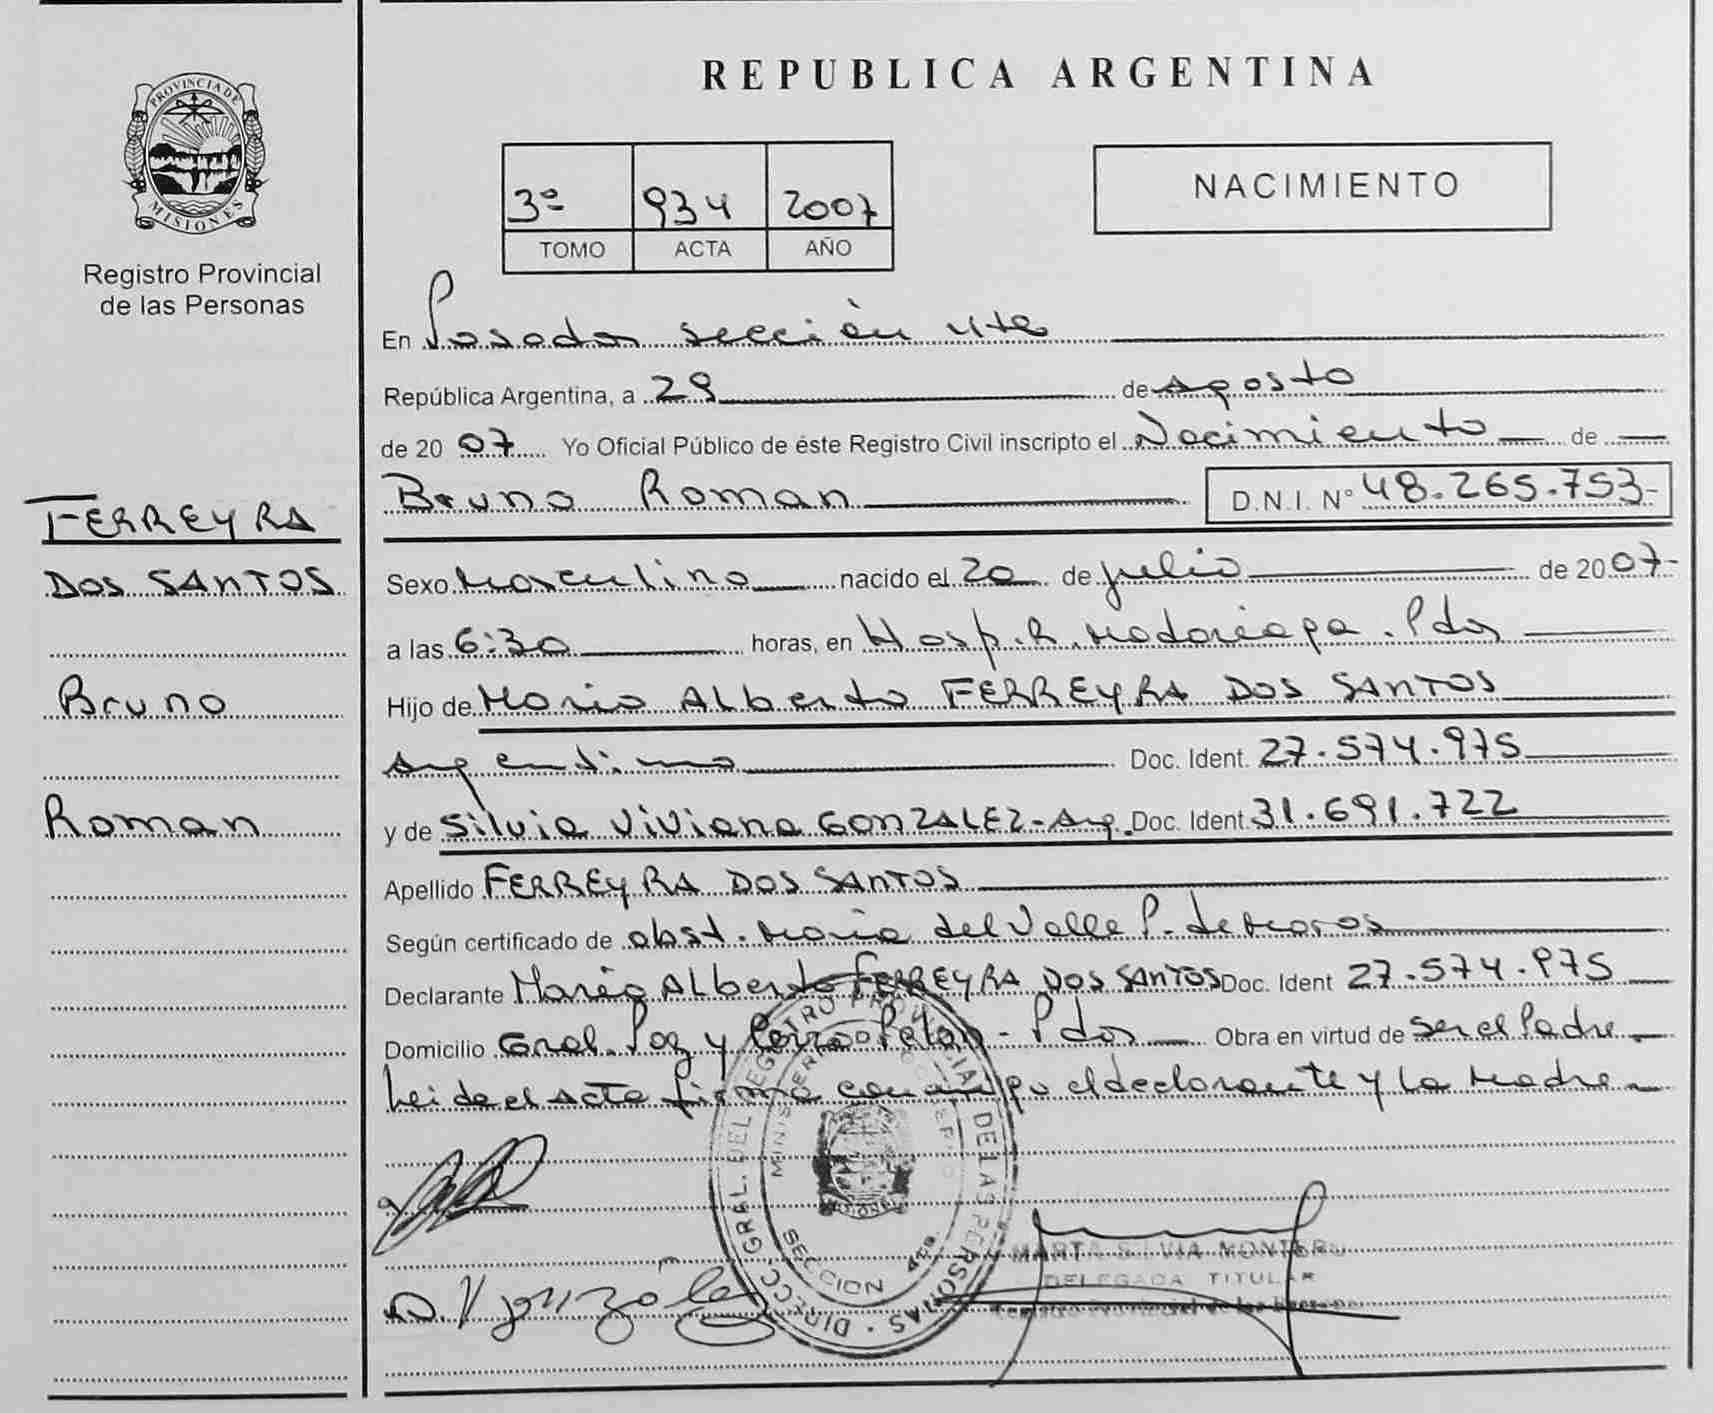 REPUBLICA ARGENTINA
PROVINCIA DE
MISIONES
Registro Provincial
de las Personas
3º 934 2007
TOMO ACTA AÑO
NACIMIENTO
En Posadas sección 4ta
República Argentina, a 29 de Agosto
de 20 07 Yo Oficial Público de éste Registro Civil inscripto el Nacimiento de
Bruno Roman D.N.I. Nº 48.265.753-
FERREYRA
DOS SANTOS
Bruno
Roman
Sexo Masculino nacido el 20 de julio de 20 07-
a las 6:30 horas, en Hosp. R. Madariaga. Pdas
Hijo de Mario Alberto FERREYRA DOS SANTOS
Argentino Doc. Ident. 27.574.975
y de Silvia Viviana GONZALEZ-Arg. Doc. Ident. 31.691.722
Apellido FERREYRA DOS SANTOS
Según certificado de obst. Maria del Valle P. de
Declarante Mario Alberto FERREYRA DOS SANTOS Doc. Ident 27.574.975
Domicilio Gral. Paz y Cerro Pelon - Pdas Obra en virtud de ser el Padre
Leida el Acta firma conmigo el declarante y La Madre
DIRECC. GRAL. DEL REGISTRO PROVINCIAL DE LAS PERSONAS
SECCION 4ta
MARTA SILVIA MONTERO
DELEGADA TITULAR
Registro Provincial de las Personas